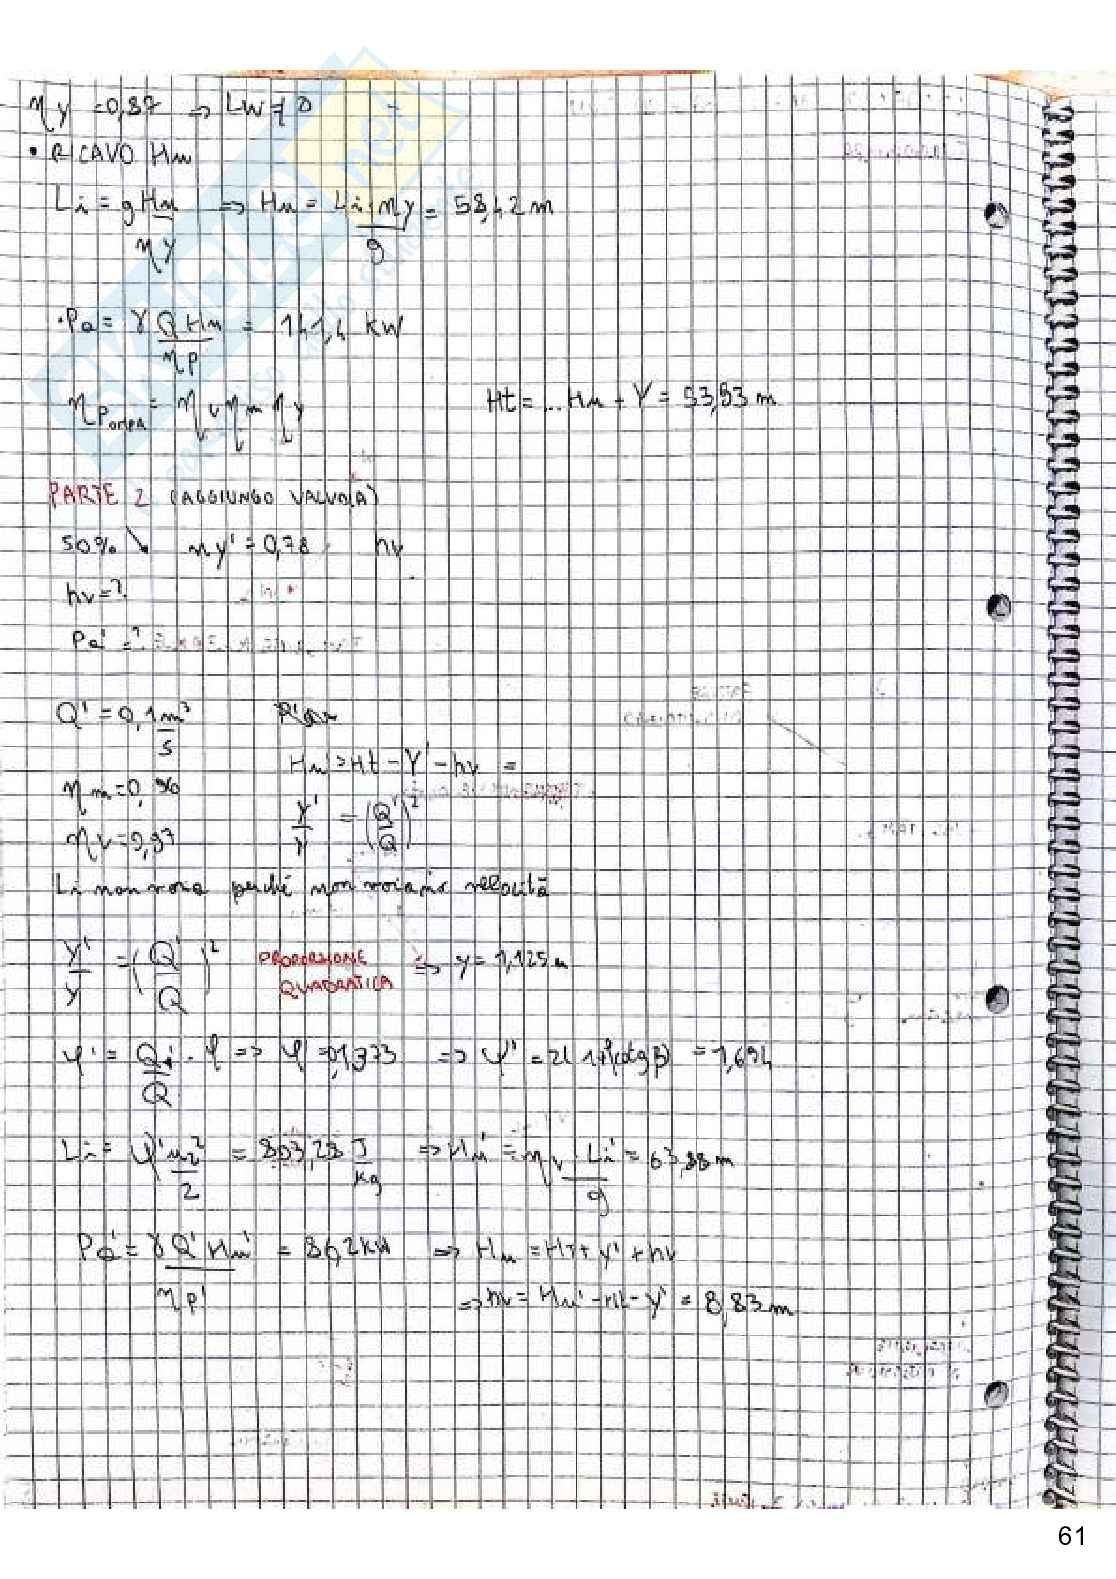 ηy = 0,87 ⇒ Lw ≠ 0
• RICAVO Hm
Li = gHm/ηy ⇒ Hm = Li·ηy/g = 58,42 m
·Pa = γQHm/ηp = 141,4 kW
ηpompa = ηv ηm ηy Ht = ... Hm + Y = 53,93 m
PARTE 2 (AGGIUNGO VALVOLA)
50% ↘ ηy' = 0,78 hv
hv = ?
Pa' = ?
Q' = 0,1 m³/s
Hm' = Ht - Y' - hv =
ηm = 0,96
Y'/Y = (Q'/Q)²
ηv = 0,97
Li non varia perché non variamo velocità
Y'/Y = (Q'/Q)² PROPORZIONE QUADRATICA ⇒ y = 1,125 m
φ' = Q'/Q · φ ⇒ φ = 0,1373 ⇒ ψ' = 2(1+φ'cotgβ) = 1,694
Li = ψ'u₂²/2 = 803,28 J/kg ⇒ Hm' = ηy · Li'/g = 63,88 m
Pa' = γQ'Hm'/ηp' = 86,2 kW ⇒ Hm = Ht + y' + hv
⇒ hv = Hm' - Ht - y' = 8,83 m
61